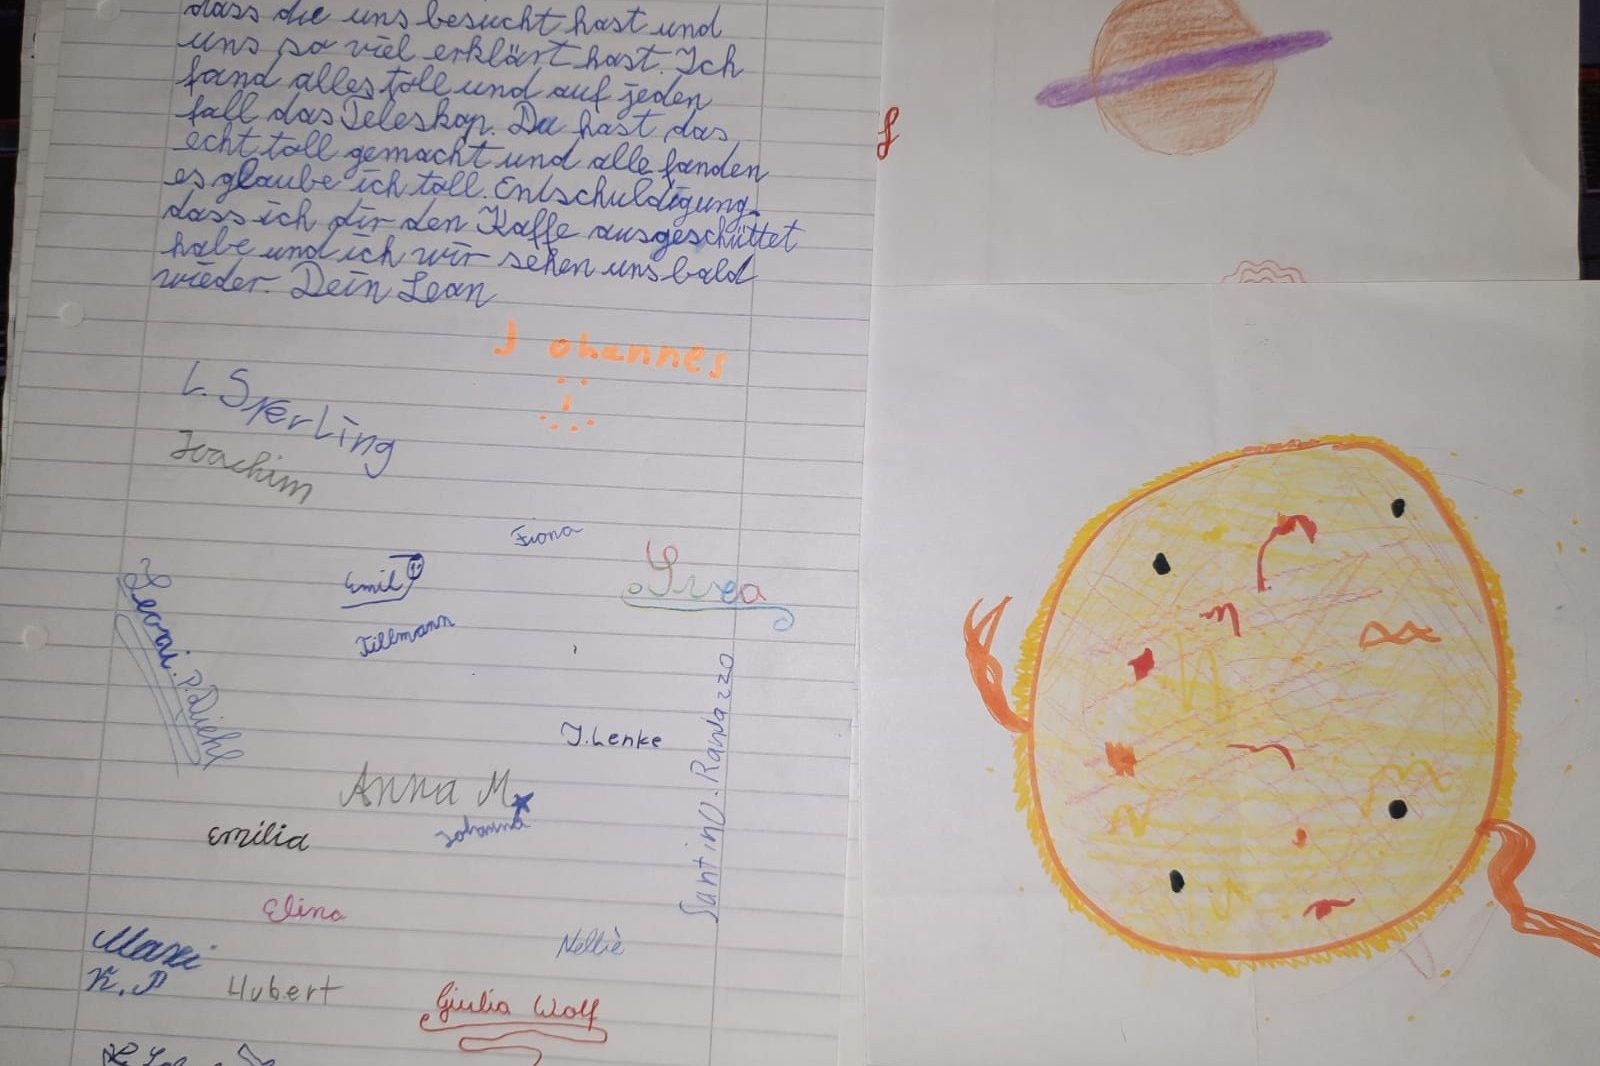 dass die uns besucht hast und
uns so viel erklärt hast. Ich
fand alles toll und auf jeden
fall das Teleskop. Du hast das
echt toll gemacht und alle fanden
es glaube ich toll. Entschuldigung
dass ich dir den Kaffe ausgeschüttet
habe und ich wir sehen uns bald
wieder. Dein Lean
Johannes
L. Sperling
Joachim
Fiona
Emil
Svea
Tillmann
P. Diehl
J. Lenke
Santino. Randazzo
Anna M.
Johanna
Emilia
Elina
Maxi
K. P
Nellie
Hubert
Giulia Wolf